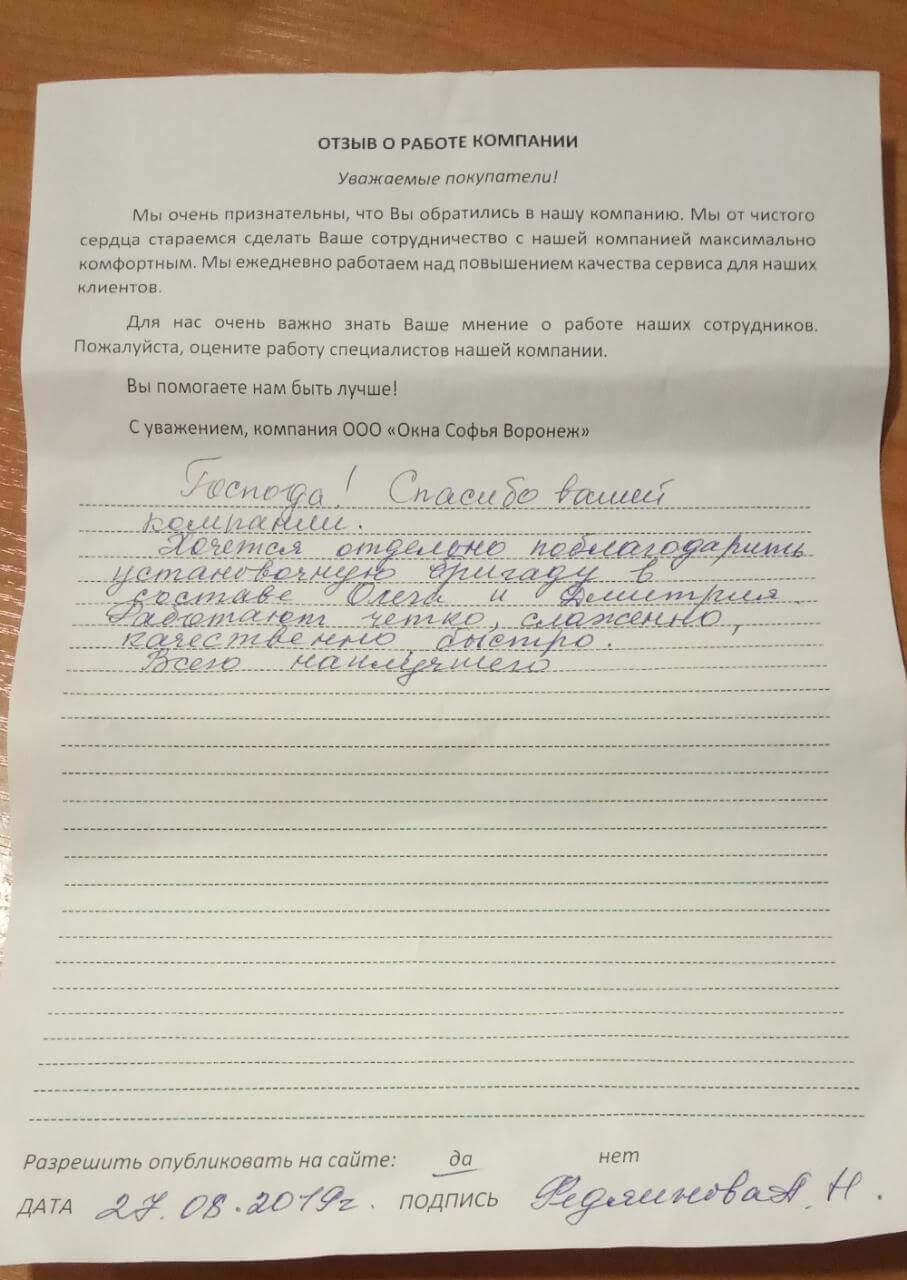 ОТЗЫВ О РАБОТЕ КОМПАНИИ
Уважаемые покупатели!
Мы очень признательны, что Вы обратились в нашу компанию. Мы от чистого
сердца стараемся сделать Ваше сотрудничество с нашей компанией максимально
комфортным. Мы ежедневно работаем над повышением качества сервиса для наших
клиентов.
Для нас очень важно знать Ваше мнение о работе наших сотрудников.
Пожалуйста, оцените работу специалистов нашей компании.
Вы помогаете нам быть лучше!
С уважением, компания ООО «Окна Софья Воронеж»
Господа! Спасибо вашей
компании.
Хочется отдельно поблагодарить
установочную бригаду в
составе Олега и Дмитрия.
Работают четко, слаженно,
качественно, быстро.
Всего наилучшего
Разрешить опубликовать на сайте: да нет
ДАТА 27.08.2019г. ПОДПИСЬ А.Н.